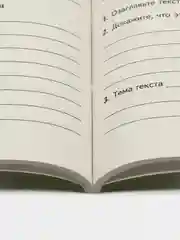 1. Озаглавьте текст
2. Докажите, что э
3. Тема текста